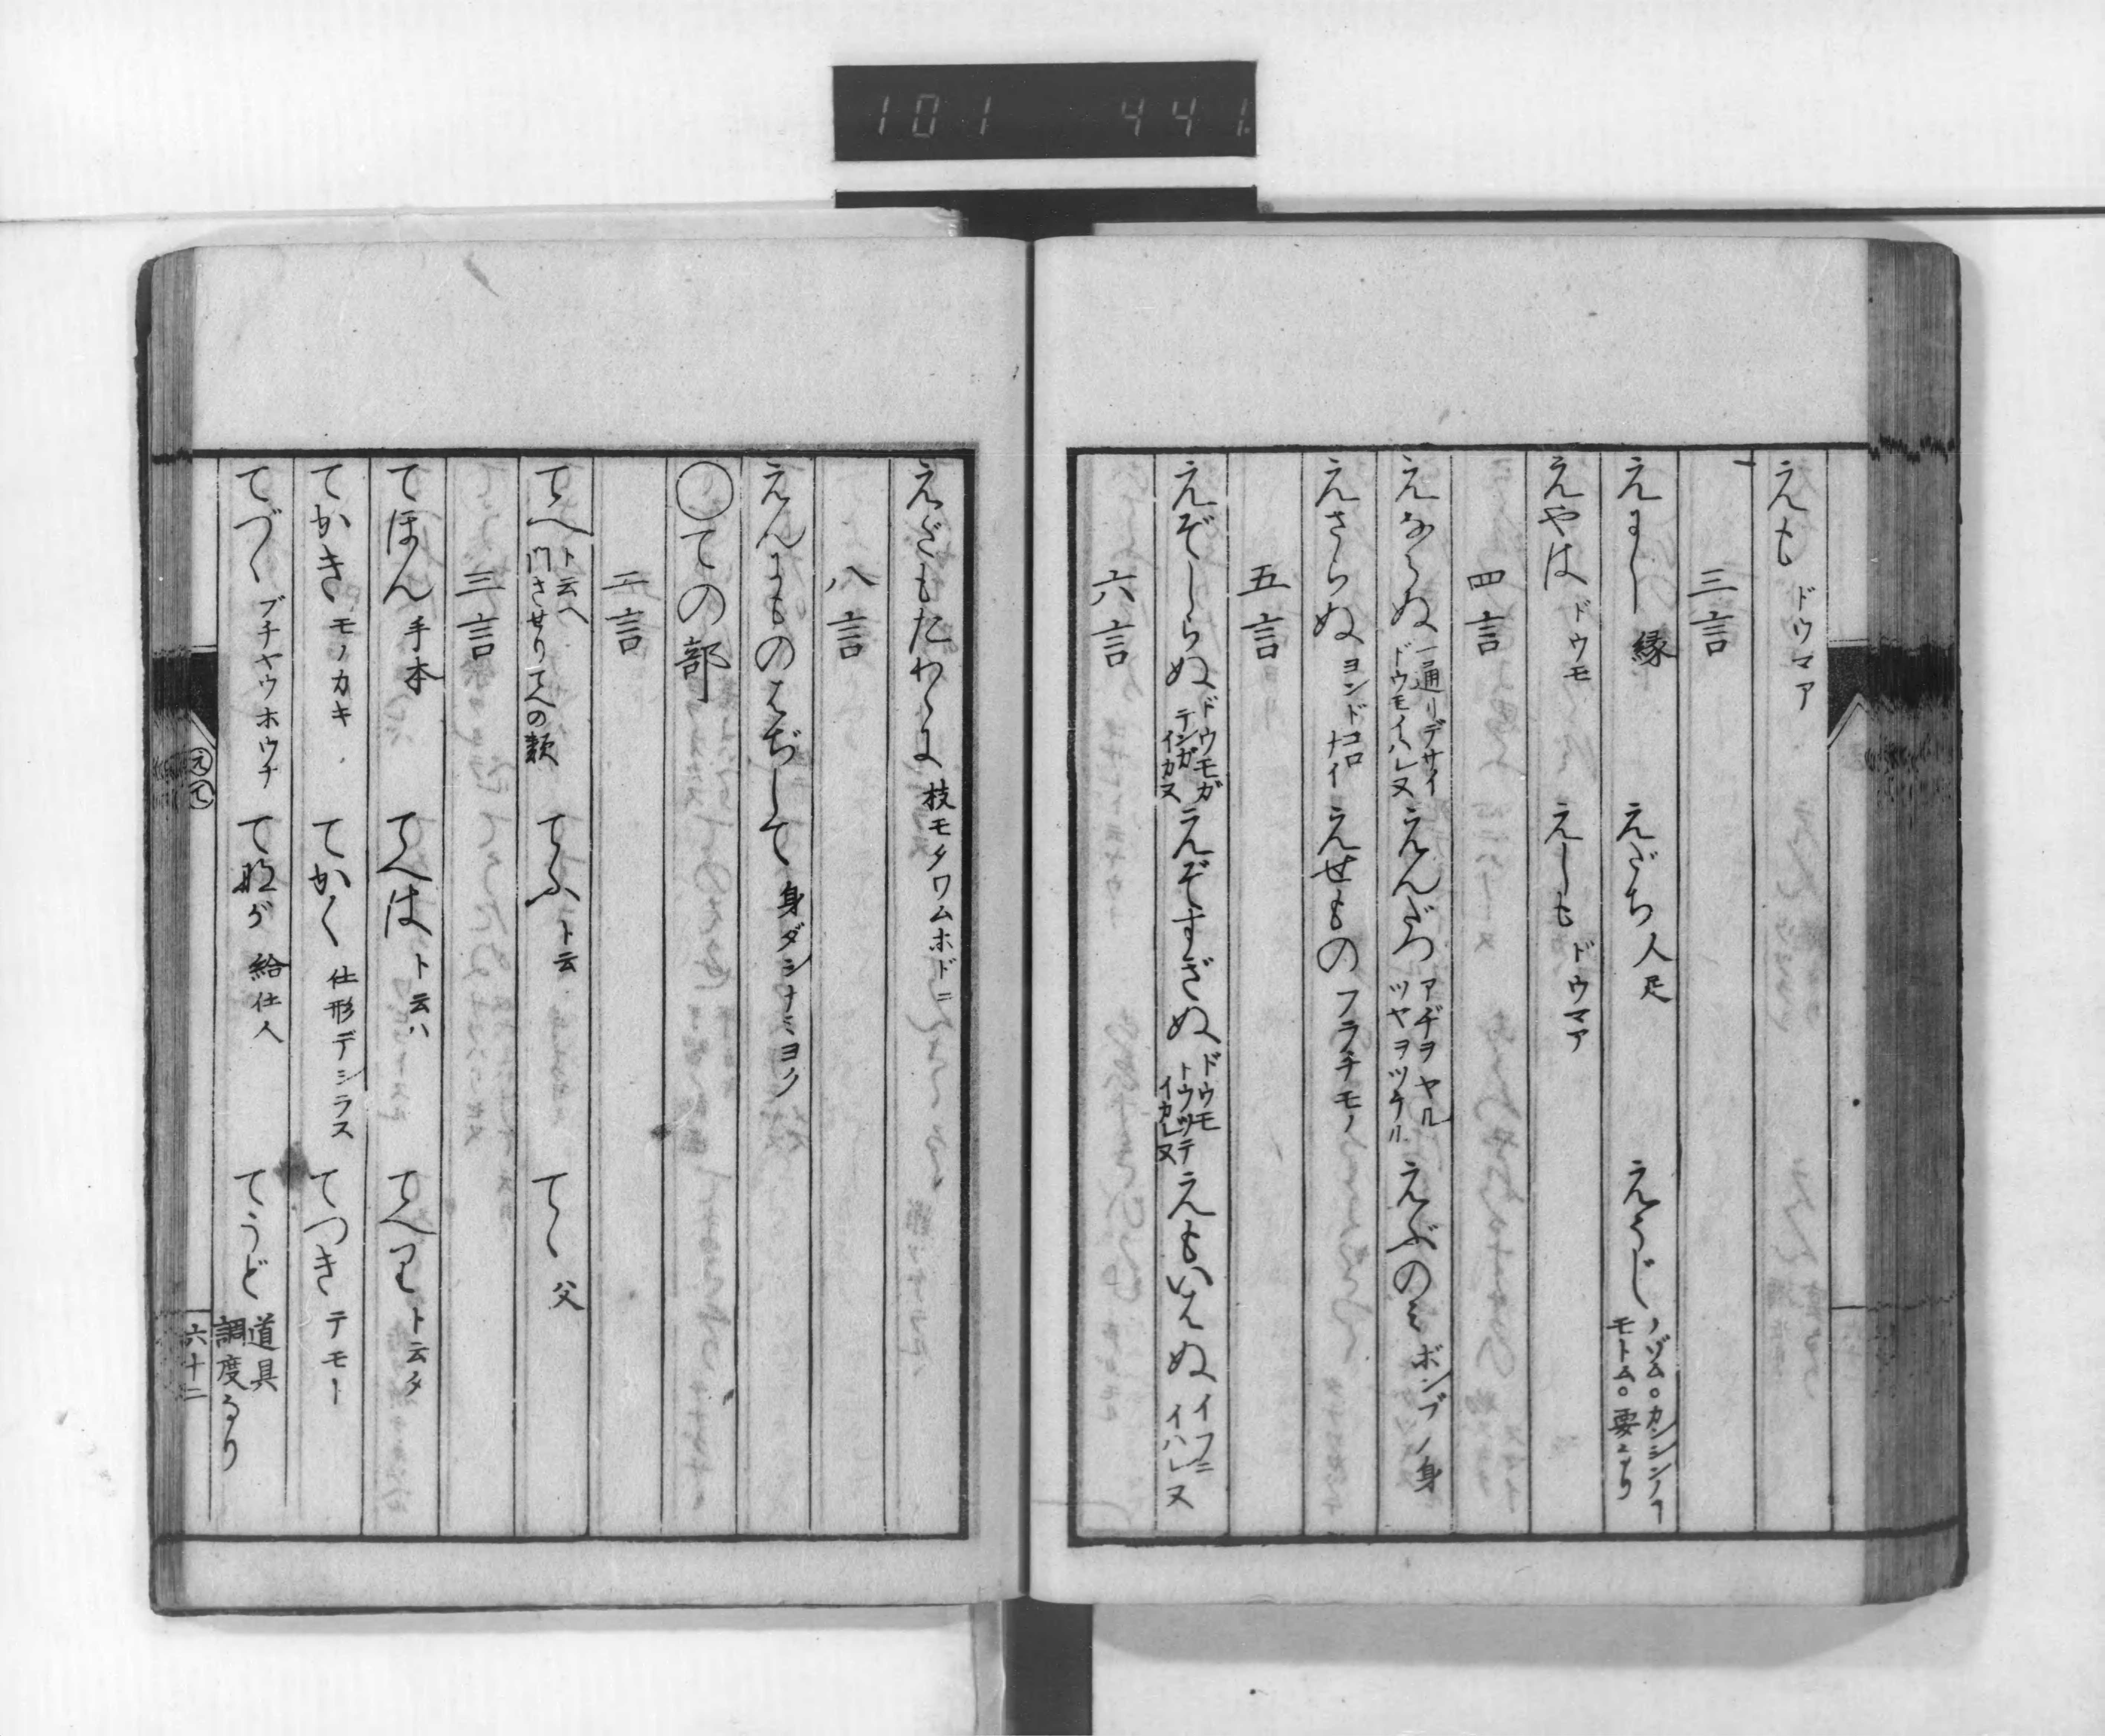 101 441
えも ドウマア
三言
えにし 縁 えだち 人足 えうじ ノゾム○カンシンノヿ モトム○要ヨリ
えやは ドウモ えしも ドウマア
四言
えならぬ 一通リデサイ ドウモイハレヌ えんだつ アヂヲヤル ツヤヲツケル えぶのみ ボンブノ身
えさらぬ ヨンドコロナイ えせもの フラチモノ
五言
えぞしらぬ ドウモガテンガイカヌ えぞすぎぬ ドウモトウツテイカレヌ えもいはぬ イフニイハレヌ
六言
えだもたわゝに 枝モタワムホドニ
八言
えんにものはぢして 身ダシナミヨク
○ての部
二言
てへ ト云ヘ 門させりてへの類 てふ ト云 てゝ 父
三言
てほん 手本 てへは ト云ハ てへり ト云タ
てかき モノカキ てかく 仕形デシラス てつき テモー
てづゝ ブチヤウホウナ てなが 給仕人 てうど 道具 調度なり
え て
六十二